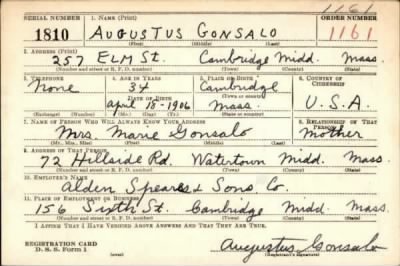 1161
SERIAL NUMBER 1. NAME (Print) ORDER NUMBER
1810 AUGUSTUS GONSALO 1161
(First) (Middle) (Last)
2. ADDRESS (Print)
257 ELM St. Cambridge Midd. Mass.
(Number and street or R. F. D. number) (Town) (County) (State)
3. TELEPHONE 4. AGE IN YEARS 5. PLACE OF BIRTH 6. COUNTRY OF CITIZENSHIP
None 34 Cambridge
DATE OF BIRTH (Town or county)
April 18-1906 Mass. U.S.A.
(Exchange) (Number) (Mo.) (Day) (Yr.) (State or country)
7. NAME OF PERSON WHO WILL ALWAYS KNOW YOUR ADDRESS 8. RELATIONSHIP OF THAT PERSON
Mrs. Marie Gonsalo Mother
(Mr., Mrs., Miss) (First) (Middle) (Last)
9. ADDRESS OF THAT PERSON
72 Hillside Rd. Watertown Midd. Mass.
(Number and street or R. F. D. number) (Town) (County) (State)
10. EMPLOYER'S NAME
Alden Speares & Sons Co.
11. PLACE OF EMPLOYMENT OR BUSINESS
156 Sixth St. Cambridge Midd. Mass.
(Number and street or R. F. D. number) (Town) (County) (State)
I AFFIRM THAT I HAVE VERIFIED ABOVE ANSWERS AND THAT THEY ARE TRUE.
REGISTRATION CARD
D. S. S. Form 1 Augustus Gonsalo
(Registrant's signature)